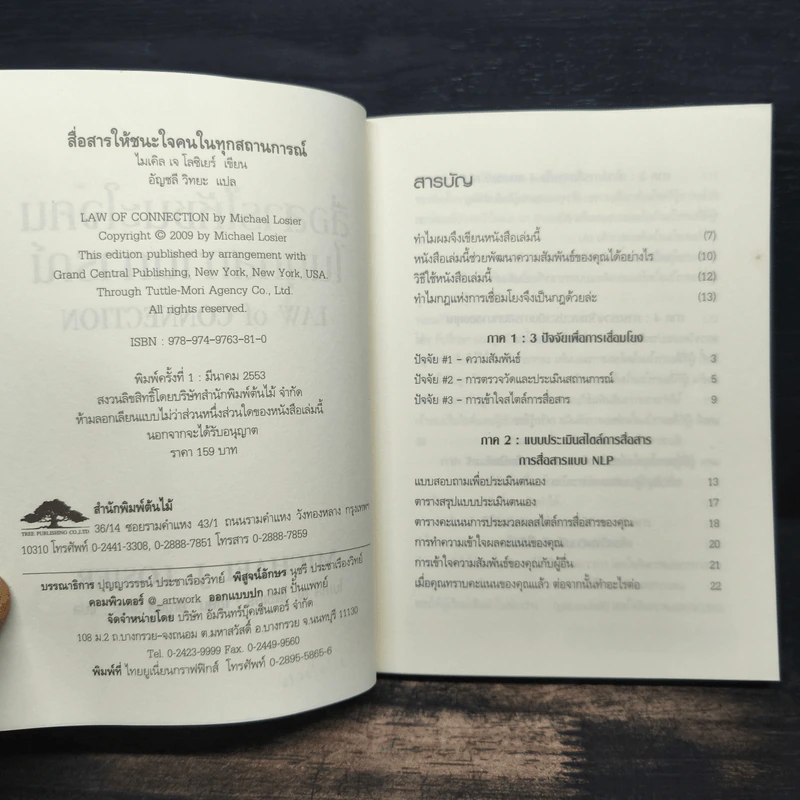 สื่อสารให้ชนะใจคนในทุกสถานการณ์
ไมเคิล เจ โลซิเยร์ เขียน
อัญชลี วิทยะ แปล
LAW OF CONNECTION by Michael Losier
Copyright © 2009 by Michael Losier
This edition published by arrangement with
Grand Central Publishing, New York, New York, USA.
Through Tuttle-Mori Agency Co., Ltd.
All rights reserved.
ISBN : 978-974-9763-81-0
พิมพ์ครั้งที่ 1 : มีนาคม 2553
สงวนลิขสิทธิ์โดยบริษัทสำนักพิมพ์ต้นไม้ จำกัด
ห้ามลอกเลียนแบบไม่ว่าส่วนหนึ่งส่วนใดของหนังสือเล่มนี้
นอกจากจะได้รับอนุญาต
ราคา 159 บาท
TREE PUBLISHING CO.,LTD
สำนักพิมพ์ต้นไม้
36/14 ซอยรามคำแหง 43/1 ถนนรามคำแหง วังทองหลาง กรุงเทพฯ
10310 โทรศัพท์ 0-2441-3308, 0-2888-7851 โทรสาร 0-2888-7859
บรรณาธิการ ปุญญวรรชน์ ประชาเรืองวิทย์ พิสูจน์อักษร นุชรี ประชาเรืองวิทย์
คอมพิวเตอร์ @_artwork ออกแบบปก กมส ปั้นแพทย์
จัดจำหน่ายโดย บริษัท อัมรินทร์บุ๊คเซ็นเตอร์ จำกัด
108 ม.2 ถ.บางกรวย-จงถนอม ต.มหาสวัสดิ์ อ.บางกรวย จ.นนทบุรี 11130
Tel. 0-2423-9999 Fax. 0-2449-9560
พิมพ์ที่ ไทยยูเนี่ยนกราฟฟิกส์ โทรศัพท์ 0-2895-5865-6
สารบัญ
ทำไมผมจึงเขียนหนังสือเล่มนี้ (7)
หนังสือเล่มนี้ช่วยพัฒนาความสัมพันธ์ของคุณได้อย่างไร (10)
วิธีใช้หนังสือเล่มนี้ (12)
ทำไมกฎแห่งการเชื่อมโยงจึงเป็นกฎด้วยล่ะ (13)
ภาค 1 : 3 ปัจจัยเพื่อการเชื่อมโยง
ปัจจัย #1 - ความสัมพันธ์ 3
ปัจจัย #2 - การตรวจวัดและประเมินสถานการณ์ 5
ปัจจัย #3 - การเข้าใจสไตล์การสื่อสาร 9
ภาค 2 : แบบประเมินสไตล์การสื่อสาร
การสื่อสารแบบ NLP
แบบสอบถามเพื่อประเมินตนเอง 13
ตารางสรุปแบบประเมินตนเอง 17
ตารางคะแนนการประมวลผลสไตล์การสื่อสารของคุณ 18
การทำความเข้าใจผลคะแนนของคุณ 20
การเข้าใจความสัมพันธ์ของคุณกับผู้อื่น 21
เมื่อคุณทราบคะแนนของคุณแล้ว ต่อจากนั้นทำอะไรต่อ 22